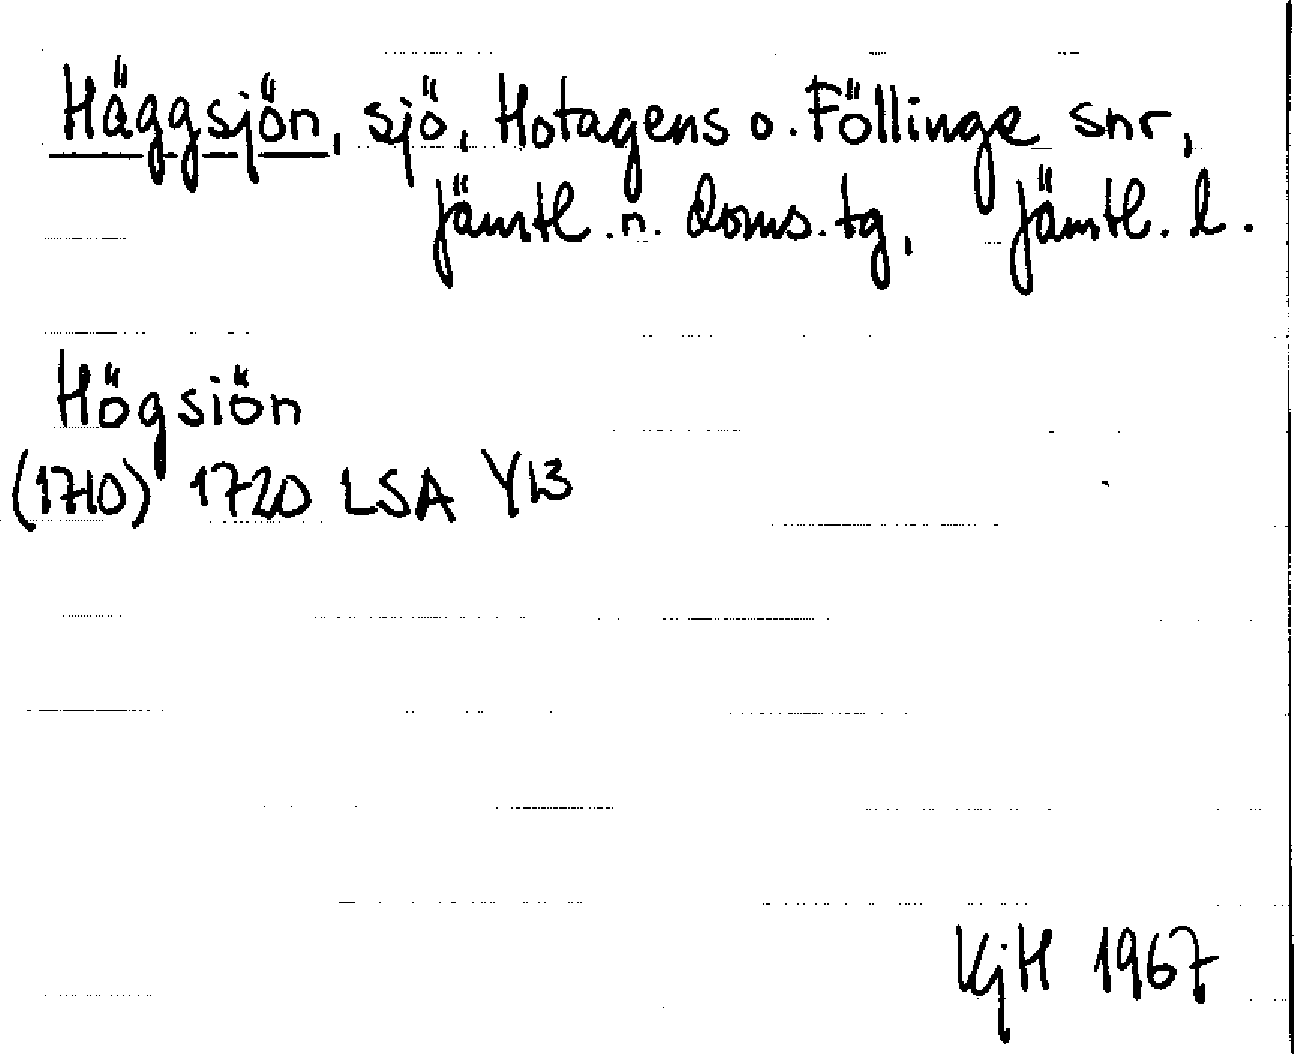 Häggsjön, sjö, Hotagens o. Föllinge snr,
Jämtl. n. doms. tg, Jämtl. l.
Högsiön
(1710) 1720 LSA Y13
KjH 1967